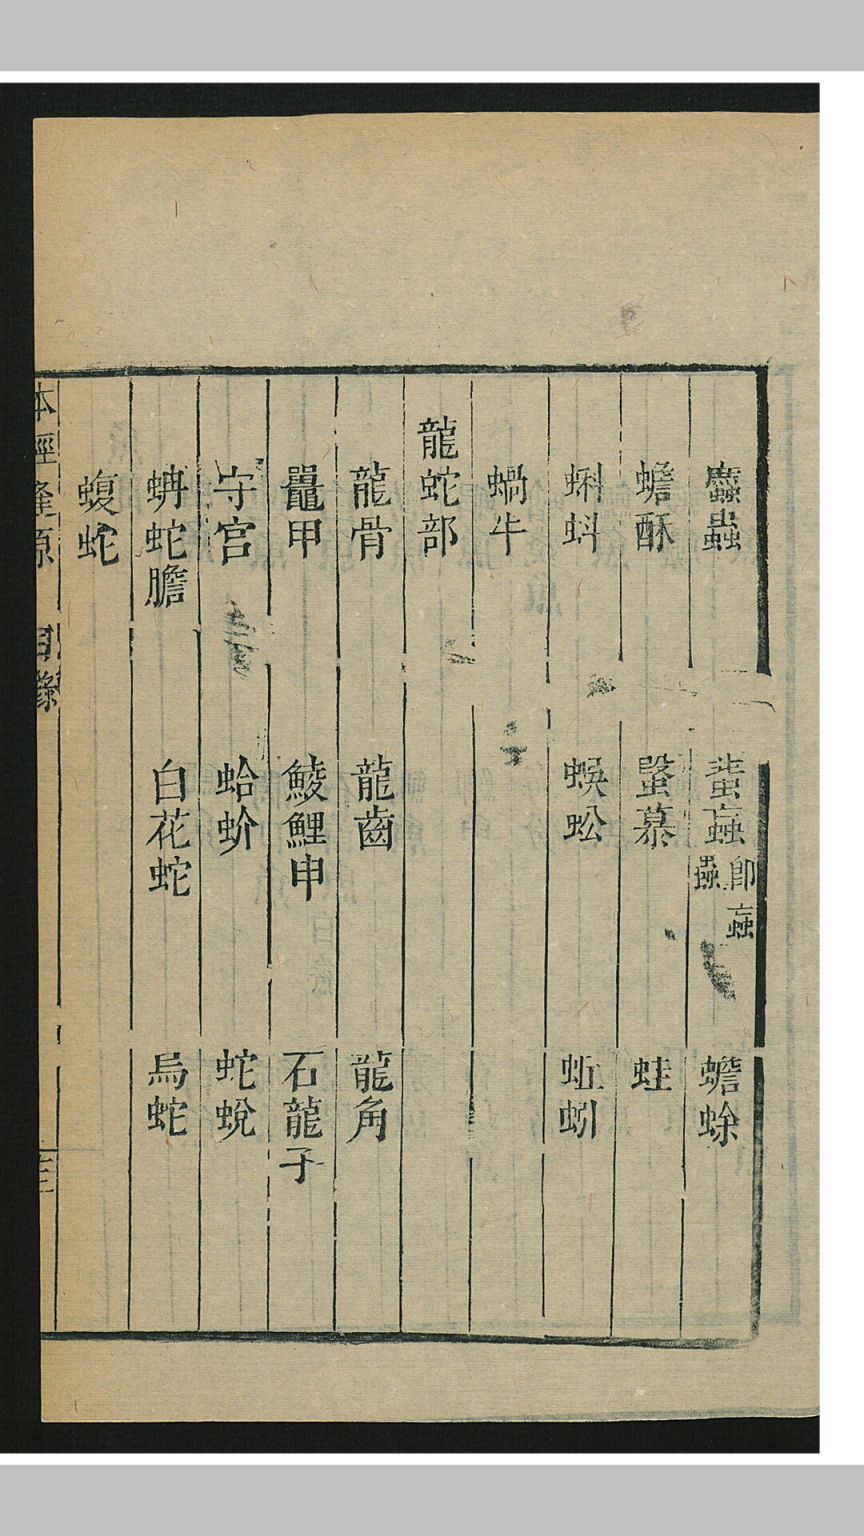 䗪蟲　蜚蝱即蝱蟲　蟾蜍
蟾酥　蛙
蝌蚪　蜈蚣　蚯蚓
蝸牛
龍蛇部
龍骨　龍齒　龍角
鼉甲　鯪鯉申　石龍子
守宮　蛤蚧　蛇蛻
蚺蛇膽　白花蛇　烏蛇
蝮蛇
本經逢原　目錄